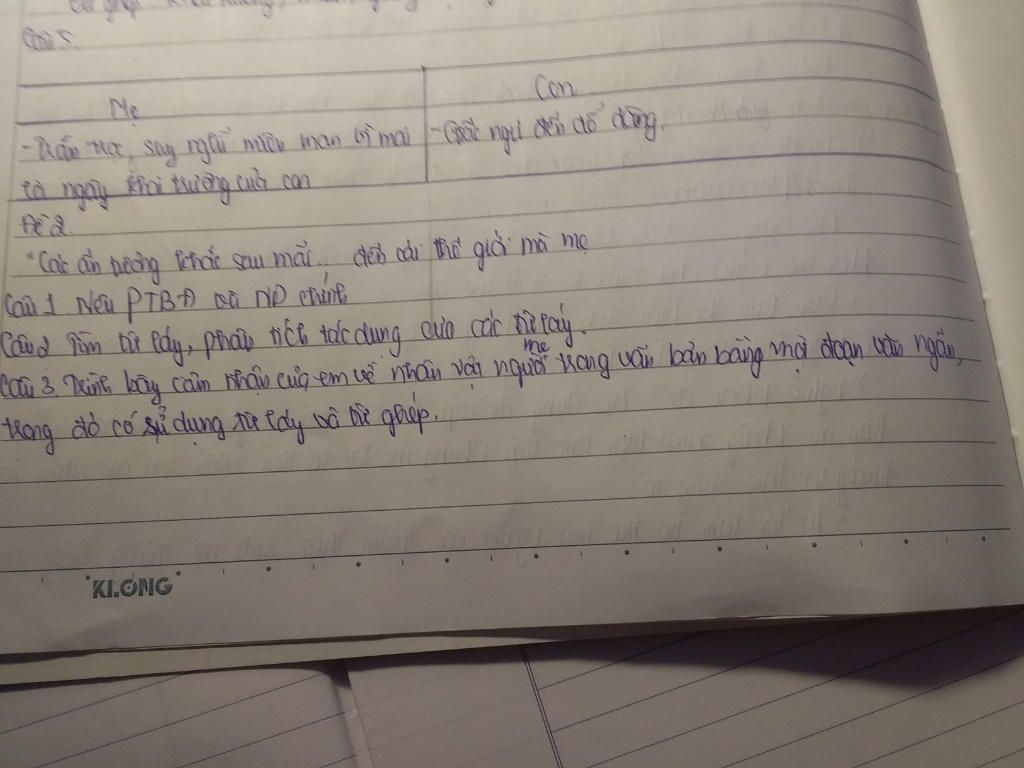 Câu 5.
Mẹ
Con
- Trằn trọc, suy nghĩ miên man vì mai
- Giấc ngủ đến dễ dàng.
là ngày khai trường của con
Đề 2
"Cái ấn tượng khắc sâu mãi... đến cái thế giới mà mẹ
Câu 1. Nêu PTBĐ và ND chính
Câu 2 Tìm từ láy, phân tích tác dụng của các từ láy.
Câu 3. Trình bày cảm nhận của em về nhân vật người mẹ trong văn bản bằng một đoạn văn ngắn,
trong đó có sử dụng từ láy và từ ghép.
KLONG